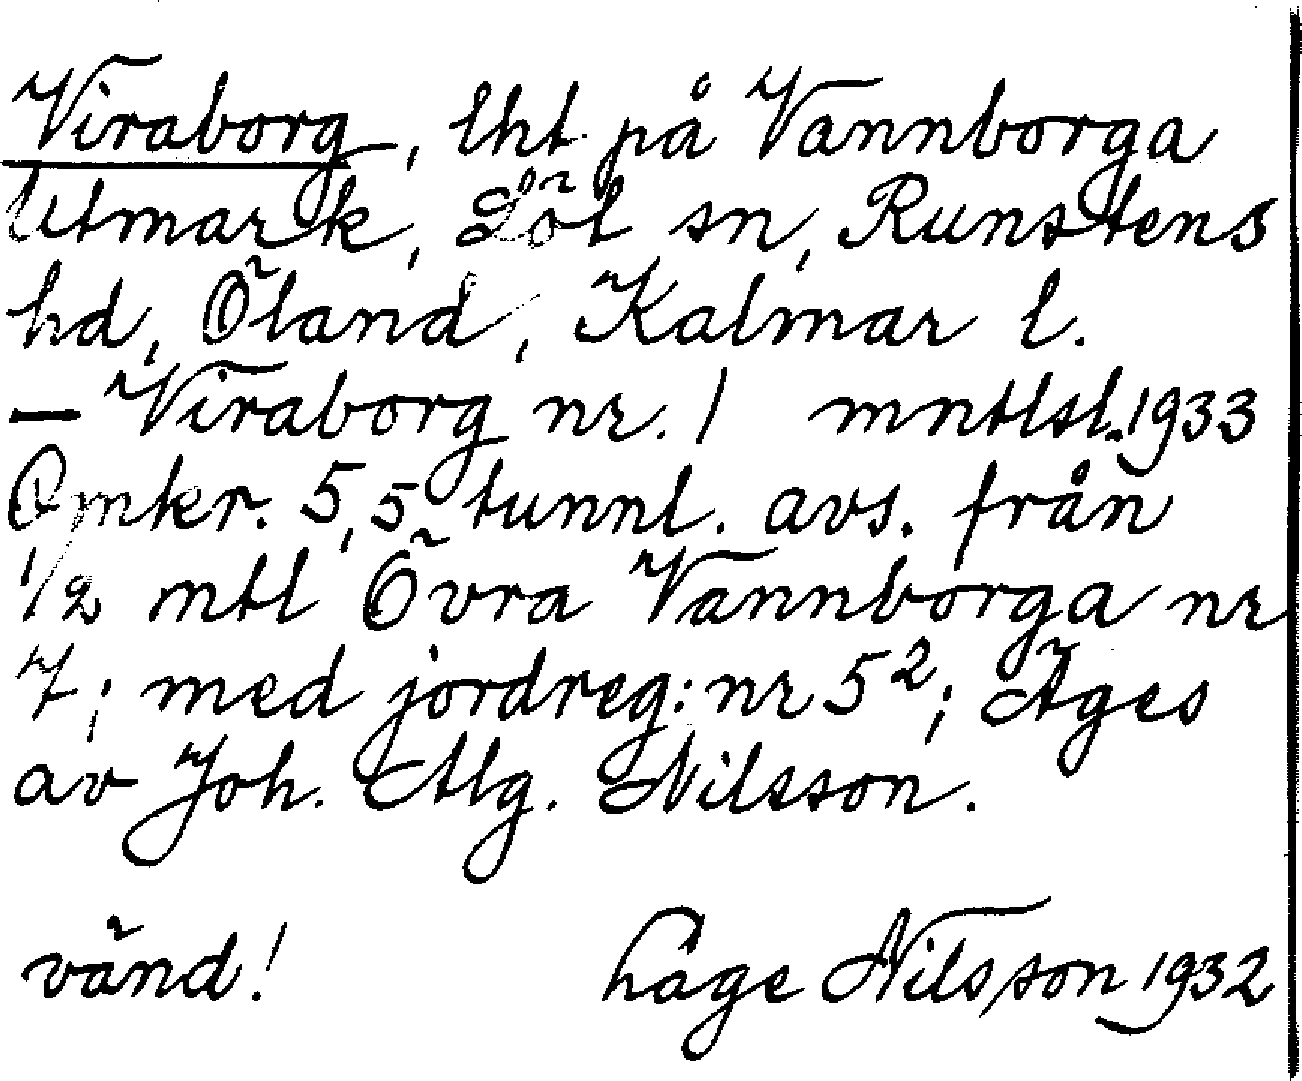 Viraborg, lht på Vannborga
Utmark, Löt sn, Runstens
hd, Öland, Kalmar l.
— Viraborg nr. 1 mntlsl. 1933
Omkr. 5,5 tunnl. avs. från
1/2 mtl Övra Vannborga nr
7; med jordreg: nr 5²; Äges
av Joh. Alg. Nilsson.
vänd! Åge Nilsson 1932